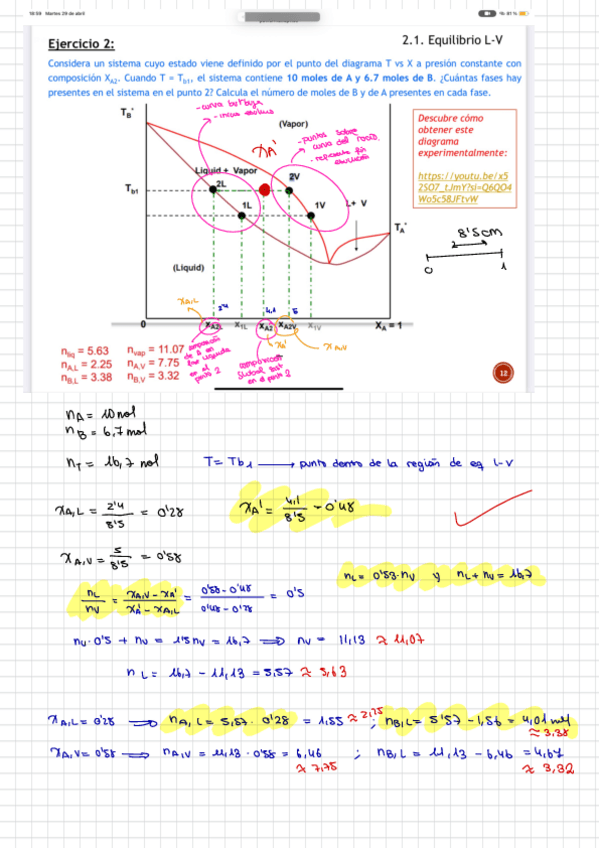 18:59 Martes 29 de abril
Ejercicio 2:
2.1. Equilibrio L-V
Considera un sistema cuyo estado viene definido por el punto del diagrama T vs X a presión constante con
composición XA2. Cuando T = Tb1, el sistema contiene 10 moles de A y 6.7 moles de B. ¿Cuántas fases hay
presentes en el sistema en el punto 2? Calcula el número de moles de B y de A presentes en cada fase.
TB*
(Vapor)
XA'
- puntos sobre
curva del rocío
Liquid + Vapor
2L
2V
Tb1
1L
1V
L+ V
TA*
(Liquid)
Descubre cómo
obtener este
diagrama
experimentalmente:
https://youtu.be/x5
2SO7_tJmY?si=Q6QO4
Wo5c58JFtvW
8'5cm
0
1
XA,L
2'4
4,1
5
0
XA2L
X1L
XA2
XA2V
X1V
XA = 1
XA'
XA,V
composición
de A en
fase líquida
en el
punto 2
composición
global sist
en el punto 2
nliq = 5.63
nvap = 11.07
nA,L = 2.25
nA,V = 7.75
nB,L = 3.38
nB,V = 3.32
12
nA = 10 mol
nB = 6,7 mol
nT = 16,7 mol
T = Tb1 → punto dentro de la región de eq L-V
XA,L = 2'4 / 8'5 = 0'28
XA' = 4,1 / 8'5 = 0'48
XA,V = 5 / 8'5 = 0'58
nL = 0'53 · nV y nL + nV = 16,7
nL / nV = XA,V - XA' / XA' - XA,L = 0'58 - 0'48 / 0'48 - 0'28 = 0'5
nV · 0'5 + nV = 1'5 nV = 16,7 ⇒ nV = 11,13 ≈ 11,07
nL = 16,7 - 11,13 = 5,57 ≈ 5,63
XA,L = 0'28 ⇒ nA,L = 5,57 · 0'28 = 1,55 ≈ 2,25 ; nB,L = 5'57 - 1,56 = 4,01 mol
≈ 3.38
XA,V = 0'58 ⇒ nA,V = 11,13 · 0'58 = 6,46 ; nB,L = 11,13 - 6,46 = 4,67
≈ 7,75
≈ 3,32